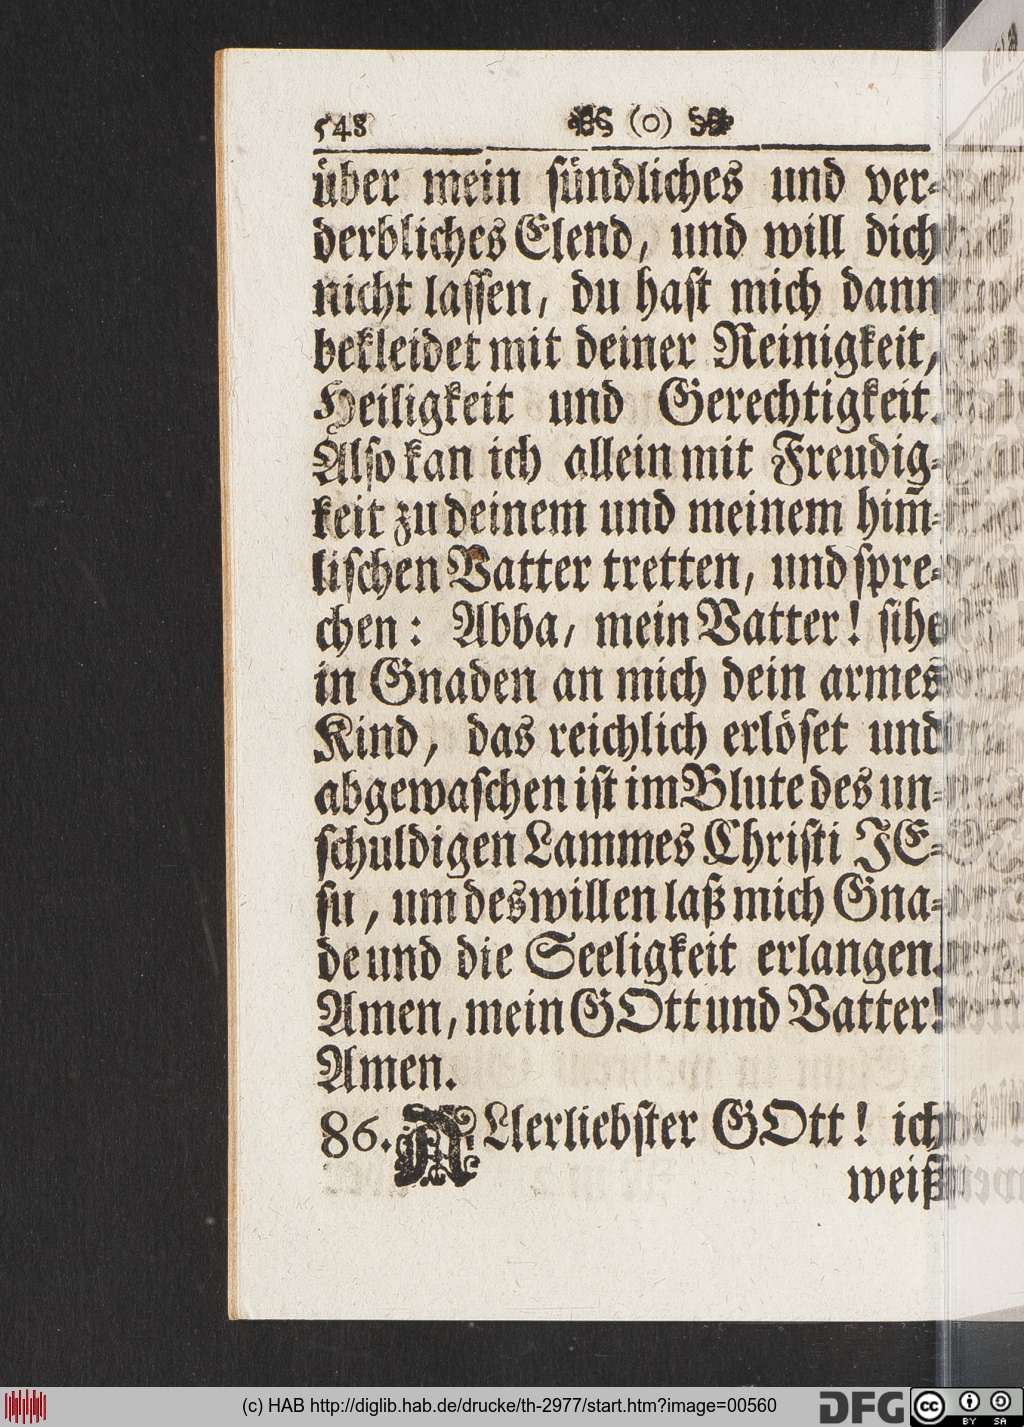 548 (o)
über mein sündliches und ver-
derbliches Elend, und will dich
nicht lassen, du hast mich dann
bekleidet mit deiner Reinigkeit,
Heiligkeit und Gerechtigkeit.
Also kan ich allein mit Freudig-
keit zu deinem und meinem him̃-
lischen Vatter tretten, und spre-
chen: Abba, mein Vatter! sihe
in Gnaden an mich dein armes
Kind, das reichlich erlöset und
abgewaschen ist im Blute des un-
schuldigen Lammes Christi JE-
su, um deswillen laß mich Gna-
de und die Seeligkeit erlangen.
Amen, mein GOtt und Vatter!
Amen.
86. ALlerliebster GOtt! ich
weiß
(c) HAB http://diglib.hab.de/drucke/th-2977/start.htm?image=00560
DFG
cc BY SA